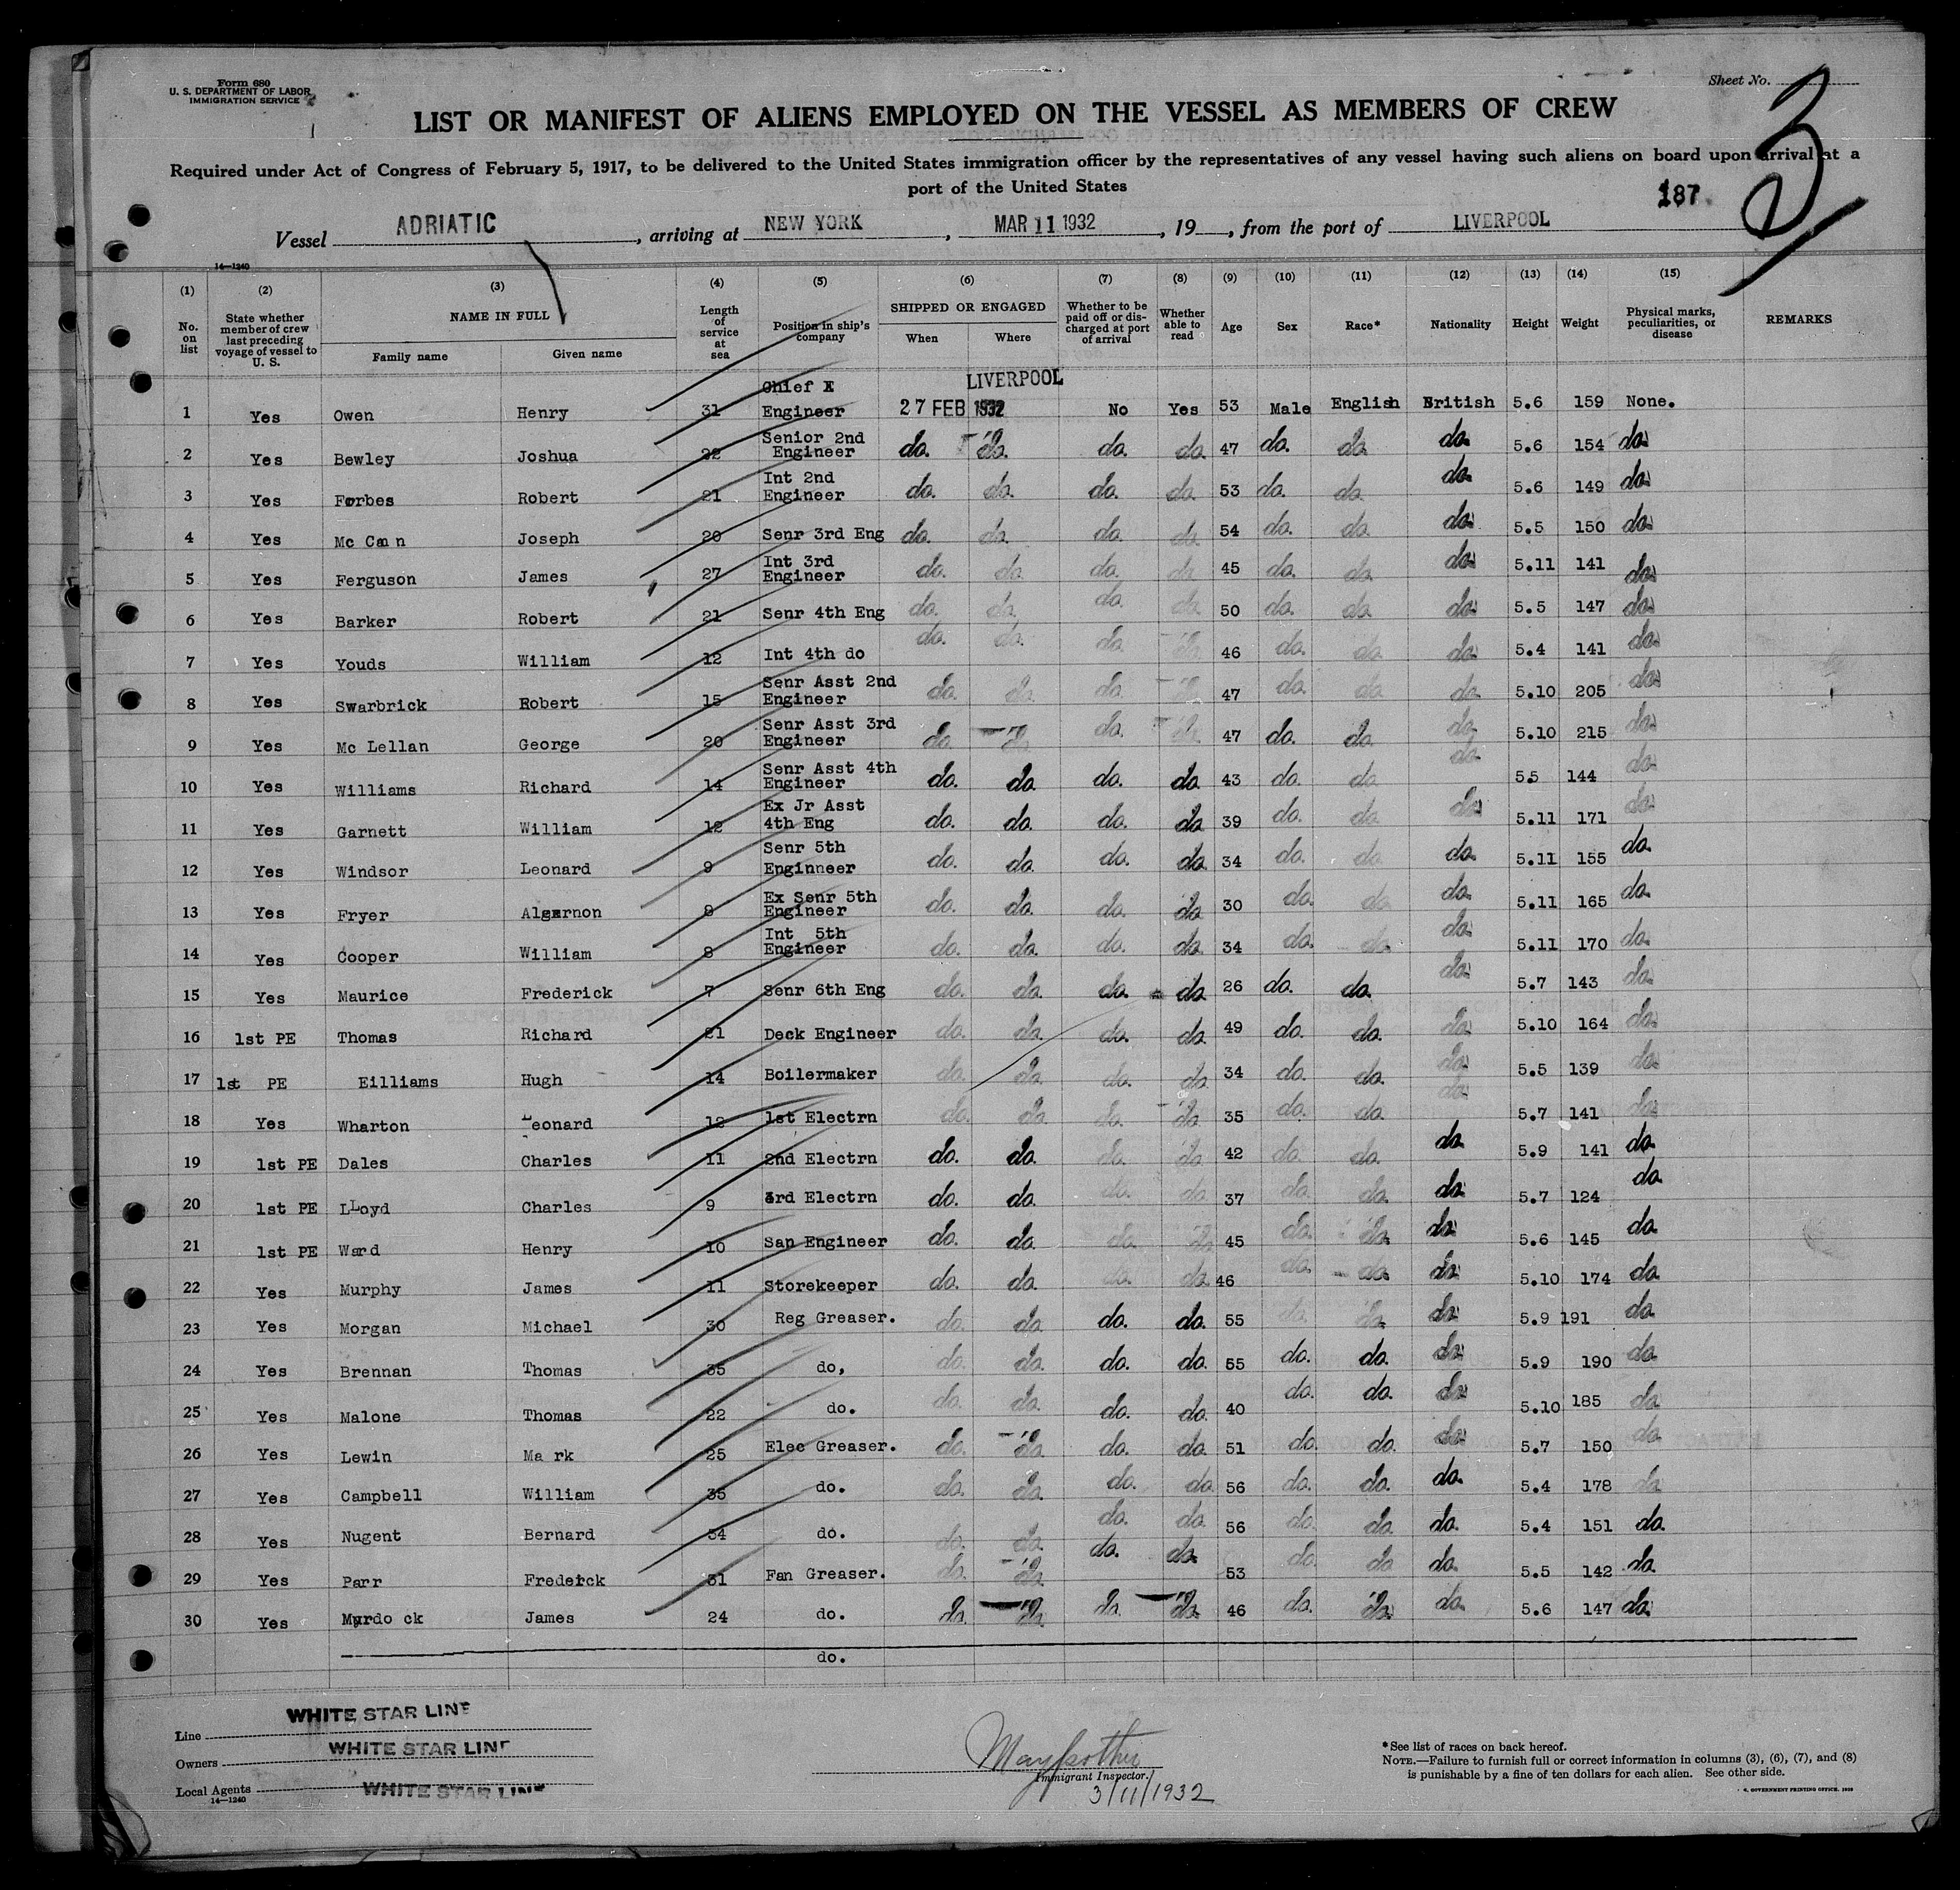 Form 680
U. S. DEPARTMENT OF LABOR
IMMIGRATION SERVICE
Sheet No. 3
LIST OR MANIFEST OF ALIENS EMPLOYED ON THE VESSEL AS MEMBERS OF CREW
Required under Act of Congress of February 5, 1917, to be delivered to the United States immigration officer by the representatives of any vessel having such aliens on board upon arrival at a
port of the United States
187
Vessel ADRIATIC, arriving at NEW YORK, MAR 11 1932, 19, from the port of LIVERPOOL
14—1240
(1) (2) (3) (4) (5) (6) (7) (8) (9) (10) (11) (12) (13) (14) (15)
No. on list State whether member of crew last preceding voyage of vessel to U. S. NAME IN FULL Family name Given name Length of service at sea Position in ship's company SHIPPED OR ENGAGED When Where Whether to be paid off or discharged at port of arrival Whether able to read Age Sex Race* Nationality Height Weight Physical marks, peculiarities, or disease REMARKS
1 Yes Owen Henry 31 Chief E Engineer 27 FEB 1932 LIVERPOOL No Yes 53 Male English British 5.6 159 None.
2 Yes Bewley Joshua 22 Senior 2nd Engineer do. do. do. do. 47 do. do. do. 5.6 154 do.
3 Yes Forbes Robert 21 Int 2nd Engineer do. do. do. do. 53 do. do. do. 5.6 149 do.
4 Yes Mc Can n Joseph 20 Senr 3rd Eng do. do. do. do. 54 do. do. do. 5.5 150 do.
5 Yes Ferguson James 27 Int 3rd Engineer do. do. do. do. 45 do. do. do. 5.11 141 do.
6 Yes Barker Robert 21 Senr 4th Eng do. do. do. do. 50 do. do. do. 5.5 147 do.
7 Yes Youds William 12 Int 4th do do. do. do. do. 46 do. do. do. 5.4 141 do.
8 Yes Swarbrick Robert 15 Senr Asst 2nd Engineer do. do. do. do. 47 do. do. do. 5.10 205 do.
9 Yes Mc Lellan George 20 Senr Asst 3rd Engineer do. do. do. do. 47 do. do. do. 5.10 215 do.
10 Yes Williams Richard 14 Senr Asst 4th Engineer do. do. do. do. 43 do. do. do. 5.5 144 do.
11 Yes Garnett William 12 Ex Jr Asst 4th Eng do. do. do. do. 39 do. do. do. 5.11 171 do.
12 Yes Windsor Leonard 9 Senr 5th Enginneer do. do. do. do. 34 do. do. do. 5.11 155 do.
13 Yes Fryer Algernon 8 Ex Senr 5th Engineer do. do. do. do. 30 do. do. do. 5.11 165 do.
14 Yes Cooper William 8 Int 5th Engineer do. do. do. do. 34 do. do. do. 5.11 170 do.
15 Yes Maurice Frederick 7 Senr 6th Eng do. do. do. do. 26 do. do. do. 5.7 143 do.
16 1st PE Thomas Richard 21 Deck Engineer do. do. do. do. 49 do. do. do. 5.10 164 do.
17 1st PE Eilliams Hugh 14 Boilermaker do. do. do. do. 34 do. do. do. 5.5 139 do.
18 Yes Wharton Leonard 12 1st Electrn do. do. do. do. 35 do. do. do. 5.7 141 do.
19 1st PE Dales Charles 11 2nd Electrn do. do. do. do. 42 do. do. do. 5.9 141 do.
20 1st PE Lloyd Charles 9 3rd Electrn do. do. do. do. 37 do. do. do. 5.7 124 do.
21 1st PE Ward Henry 10 San Engineer do. do. do. do. 45 do. do. do. 5.6 145 do.
22 Yes Murphy James 11 Storekeeper do. do. do. do. 46 do. do. do. 5.10 174 do.
23 Yes Morgan Michael 30 Reg Greaser. do. do. do. do. 55 do. do. do. 5.9 191 do.
24 Yes Brennan Thomas 35 do, do. do. do. do. 55 do. do. do. 5.9 190 do.
25 Yes Malone Thomas 22 do. do. do. do. do. 40 do. do. do. 5.10 185 do.
26 Yes Lewin Ma rk 25 Elec Greaser. do. do. do. do. 51 do. do. do. 5.7 150 do.
27 Yes Campbell William 35 do. do. do. do. do. 56 do. do. do. 5.4 178 do.
28 Yes Nugent Bernard 34 do. do. do. do. do. 56 do. do. do. 5.4 151 do.
29 Yes Parr Frederick 31 Fan Greaser. do. do. do. do. 53 do. do. do. 5.5 142 do.
30 Yes Murdo ck James 24 do. do. do. do. do. 46 do. do. do. 5.6 147 do.
do.
Line WHITE STAR LINE
Owners WHITE STAR LINE
Local Agents WHITE STAR LINE
14—1240
Immigrant Inspector.
3/11/1932
*See list of races on back hereof.
NOTE.—Failure to furnish full or correct information in columns (3), (6), (7), and (8)
is punishable by a fine of ten dollars for each alien. See other side.
GOVERNMENT PRINTING OFFICE